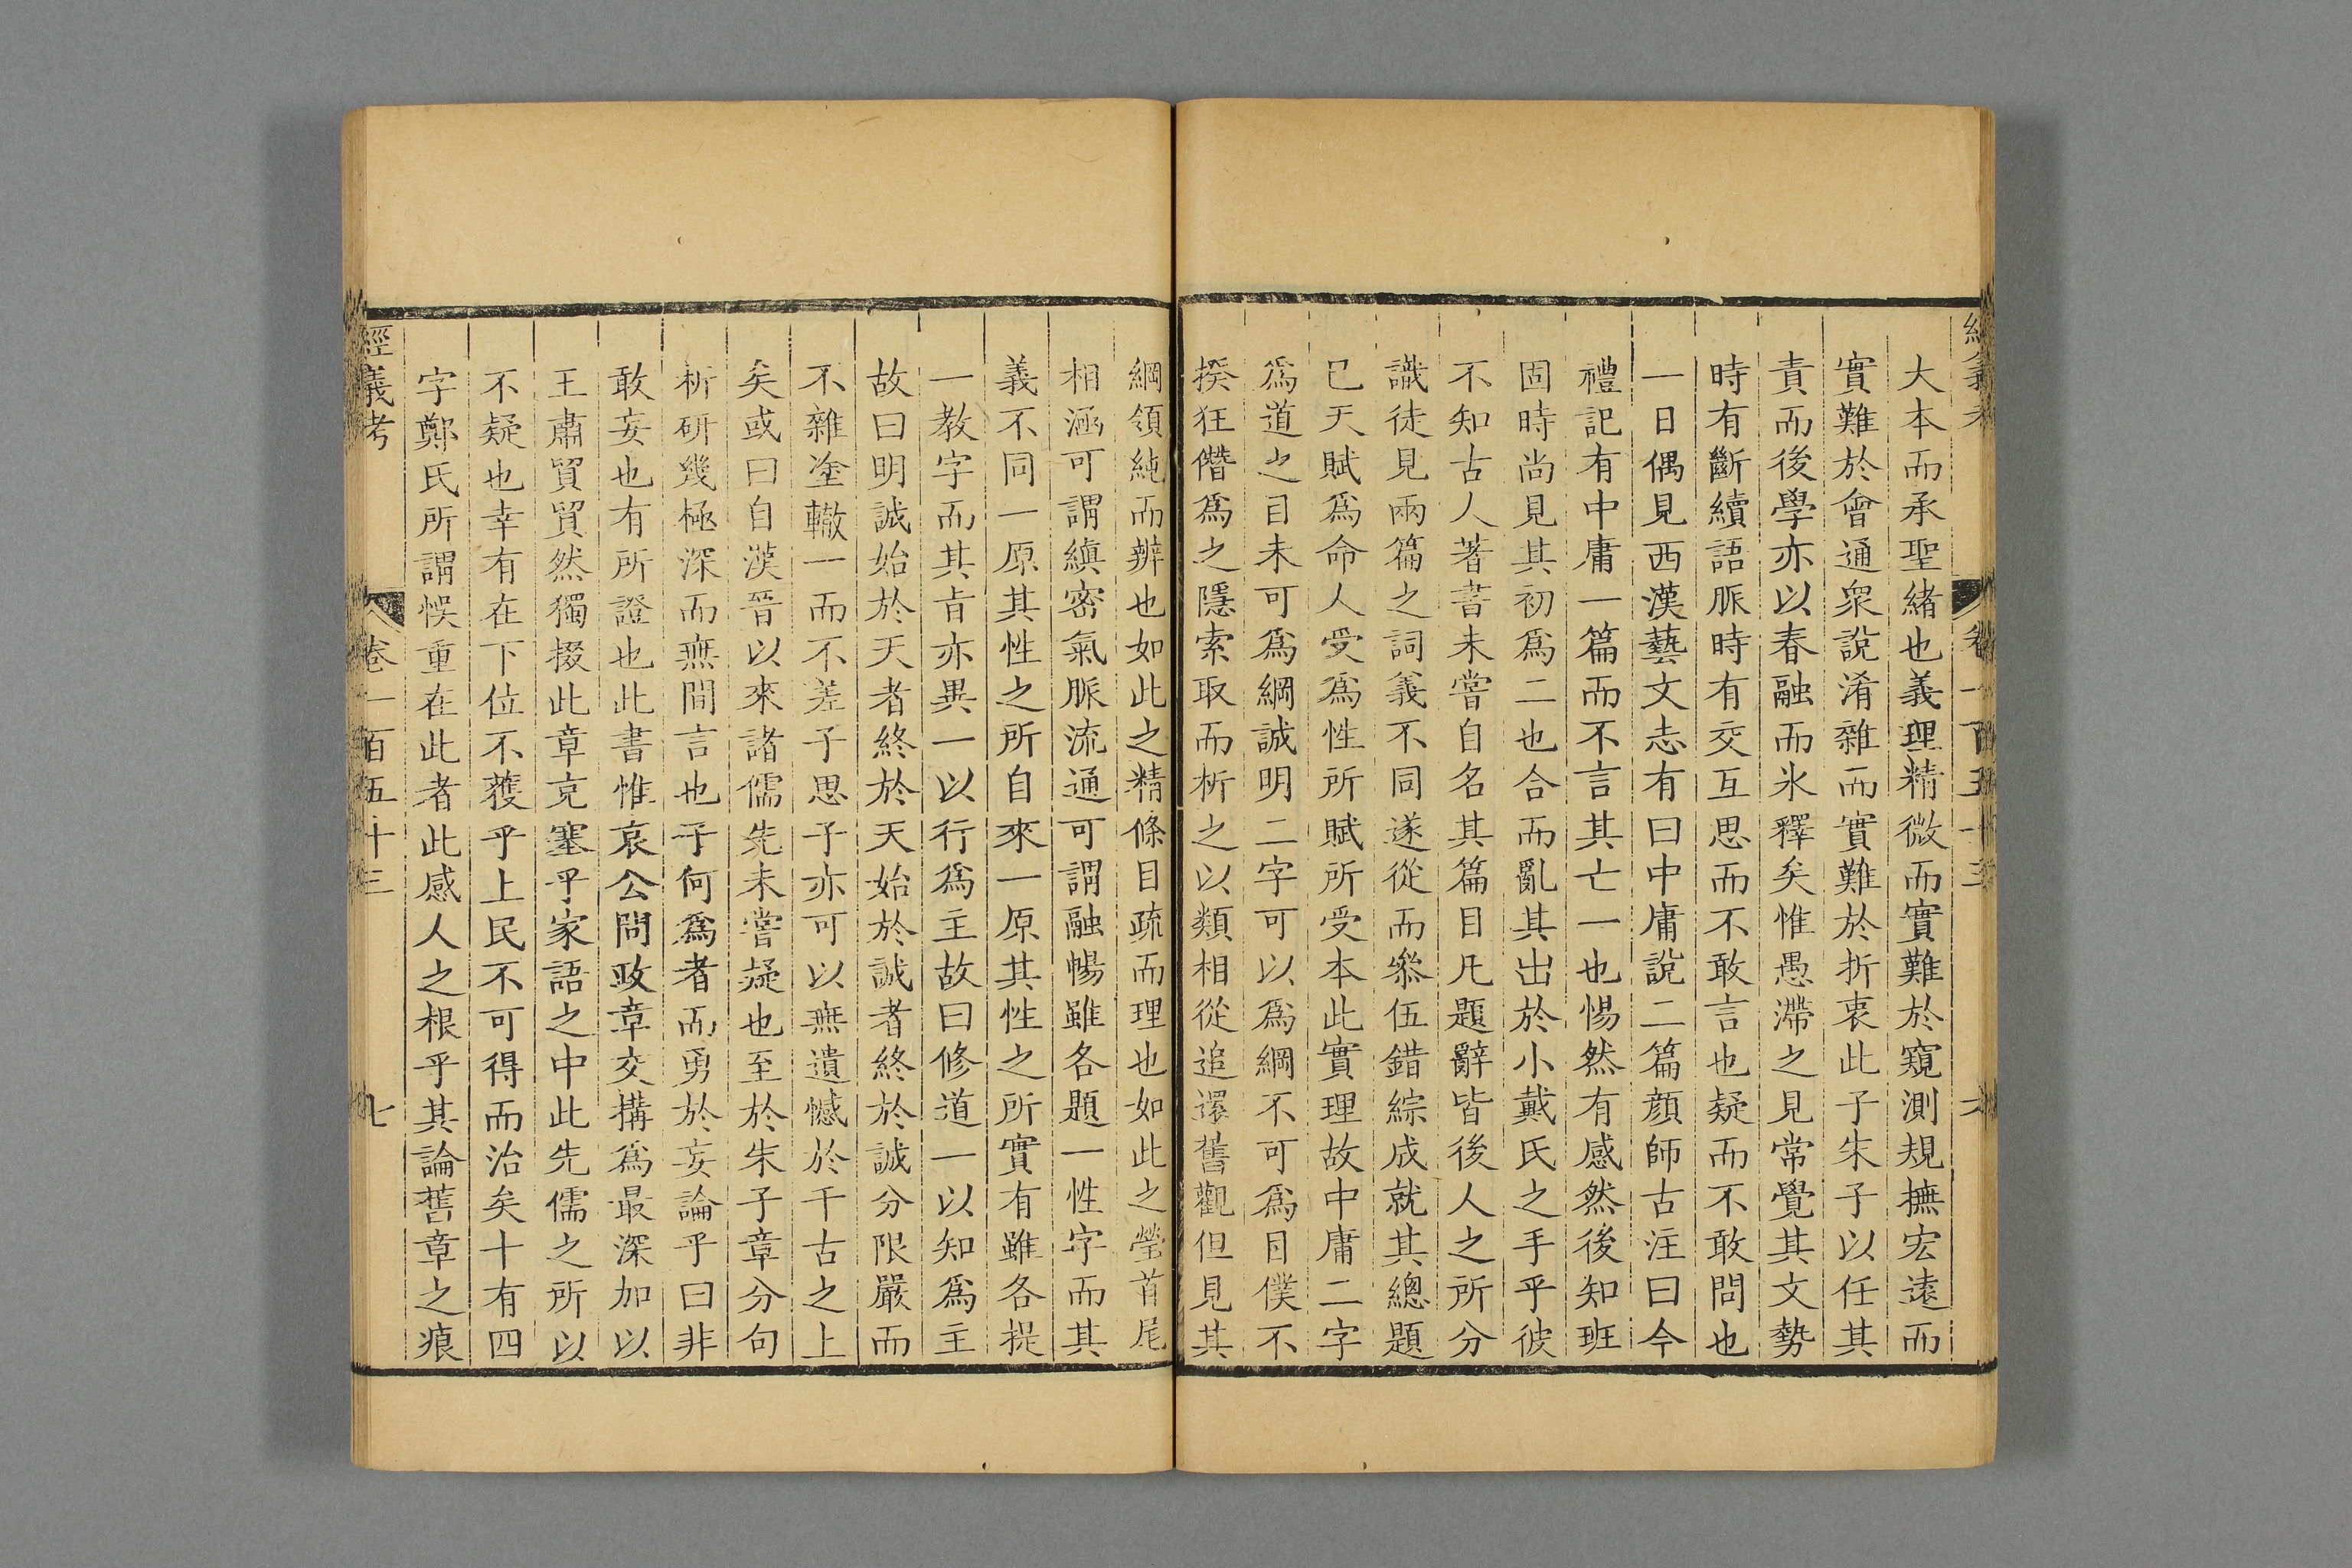 經義考
卷一百五十三
六
大本而承聖緒也義理精微而實難於窺測規撫宏遠而
實難於會通衆說淆雜而實難於折衷此子朱子以任其
責而後學亦以春融而氷釋矣惟愚滯之見常覺其文勢
時有斷續語脈時有交互思而不敢言也疑而不敢問也
一日偶見西漢藝文志有曰中庸說二篇顔師古注曰今
禮記有中庸一篇而不言其亡一也惕然有感然後知班
固時尚見其初爲二也合而亂其出於小戴氏之手乎彼
不知古人著書未嘗自名其篇目凡題辭皆後人之所分
識徒見兩篇之詞義不同遂從而叅伍錯綜成就其總題
已天賦爲命人受爲性所賦所受本此實理故中庸二字
爲道之目未可爲綱誠明二字可以爲綱不可爲目僕不
揆狂僭爲之隱索取而析之以類相從追還舊觀但見其
綱領純而辨也如此之精條目疏而理也如此之瑩首尾
相涵可謂縝密氣脈流通可謂融暢雖各題一性字而其
義不同一原其性之所自來一原其性之所實有雖各提
一教字而其㫖亦異一以行爲主故曰修道一以知爲主
故曰明誠始於天者終於天始於誠者終於誠分限嚴而
不雜塗轍一而不差子思子亦可以無遺憾於千古之上
矣或曰自漢晉以來諸儒先未嘗疑也至於朱子章分句
析研幾極深而無間言也子何爲者而勇於妄論乎曰非
敢妄也有所證也此書惟哀公問政章交搆爲最深加以
王肅貿貿然獨掇此章充塞乎家語之中此先儒之所以
不疑也幸有在下位不獲乎上民不可得而治矣十有四
字鄭氏所謂悞重在此者此感人之根乎其論舊章之痕
經義考
卷一百五十三
七